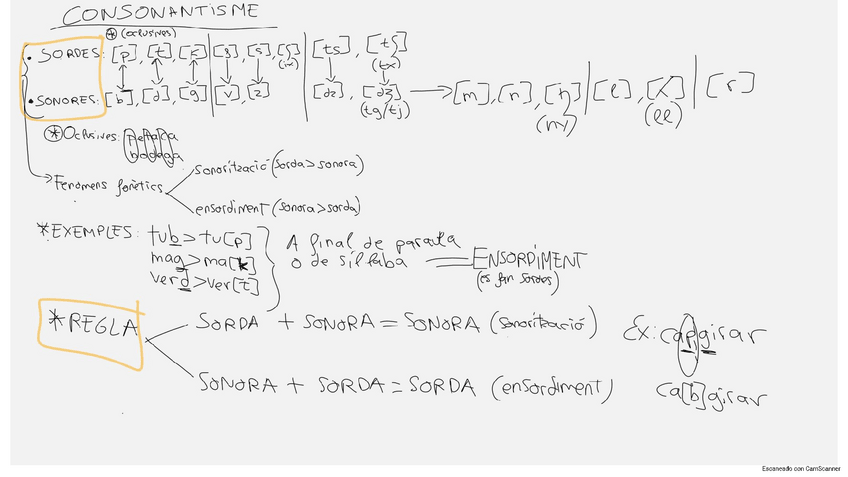 CONSONANTISME
* (oclusives)
• SORDES: [p], [t], [k] | [f], [s], [ʃ] | [ts], [tʃ]
(ix) (tx)
• SONORES: [b], [d], [g] | [v], [z] [dz], [dʒ] → [m], [n], [ɲ] | [l], [ʎ] | [r]
(tg/tj) (ny) (ll)
* Oclusives: petaca
bodega
→ Fenòmens fonètics
sonorització (sorda > sonora)
ensordiment (sonora > sorda)
* EXEMPLES: tub > tu[p]
mag > ma[k]
verd > ver[t]
A final de paraula
o de síl·laba
ENSORDIMENT
(es fan sordes)
* REGLA
SORDA + SONORA = SONORA (sonorització)
SONORA + SORDA = SORDA (ensordiment)
Ex: capgirar
ca[b]girar
Escaneado con CamScanner